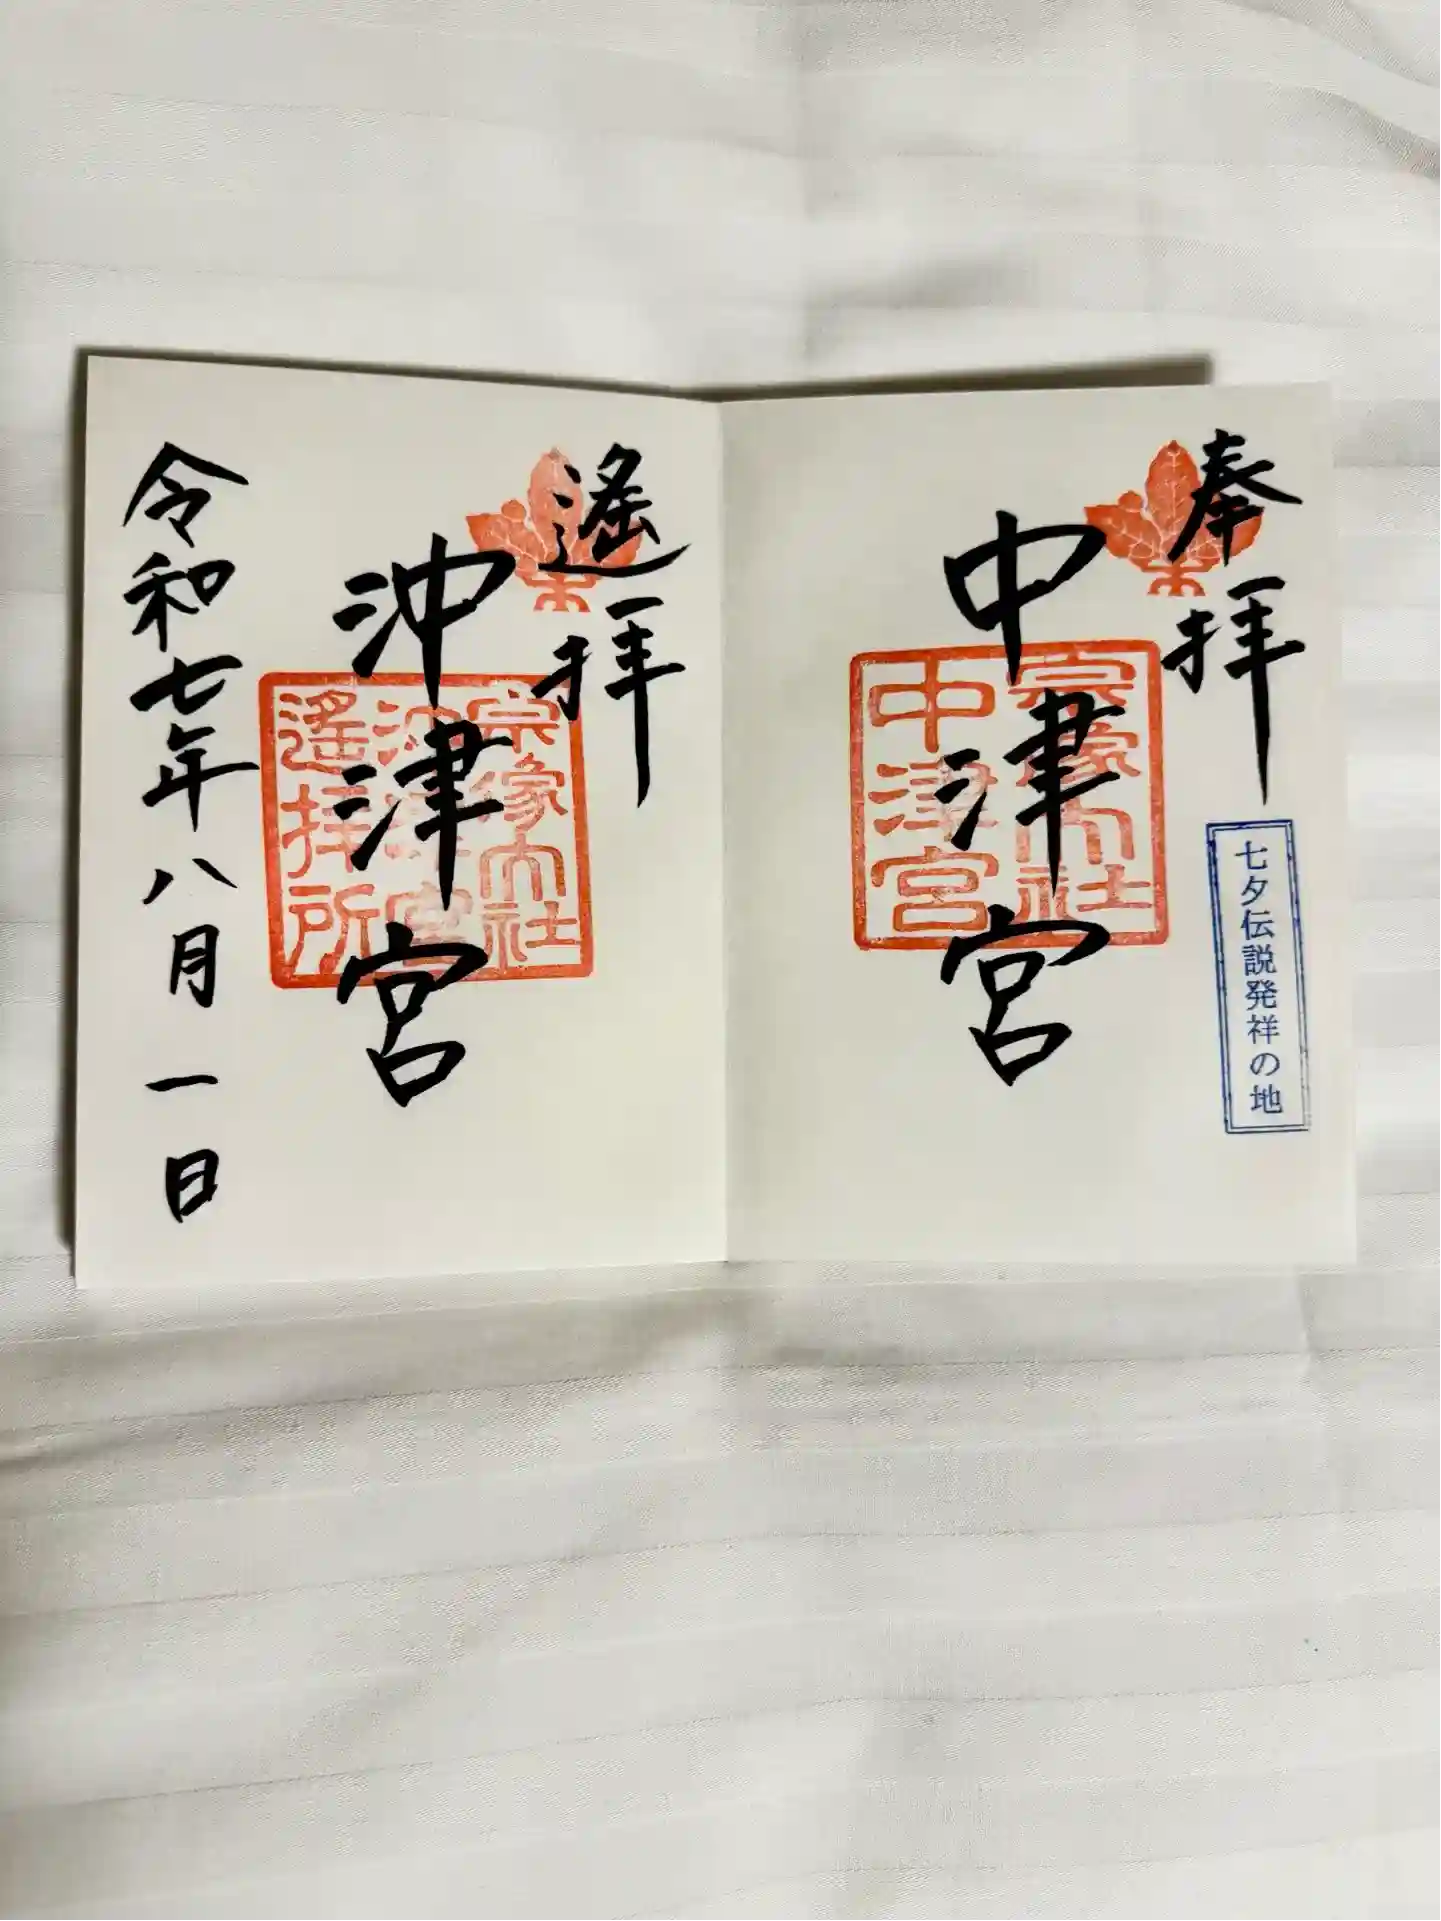 奉拝
中津宮
宗像大社
中津宮
七夕伝説発祥の地
遙拝
沖津宮
宗像大社
沖津宮
遙拝所
令和七年八月一日